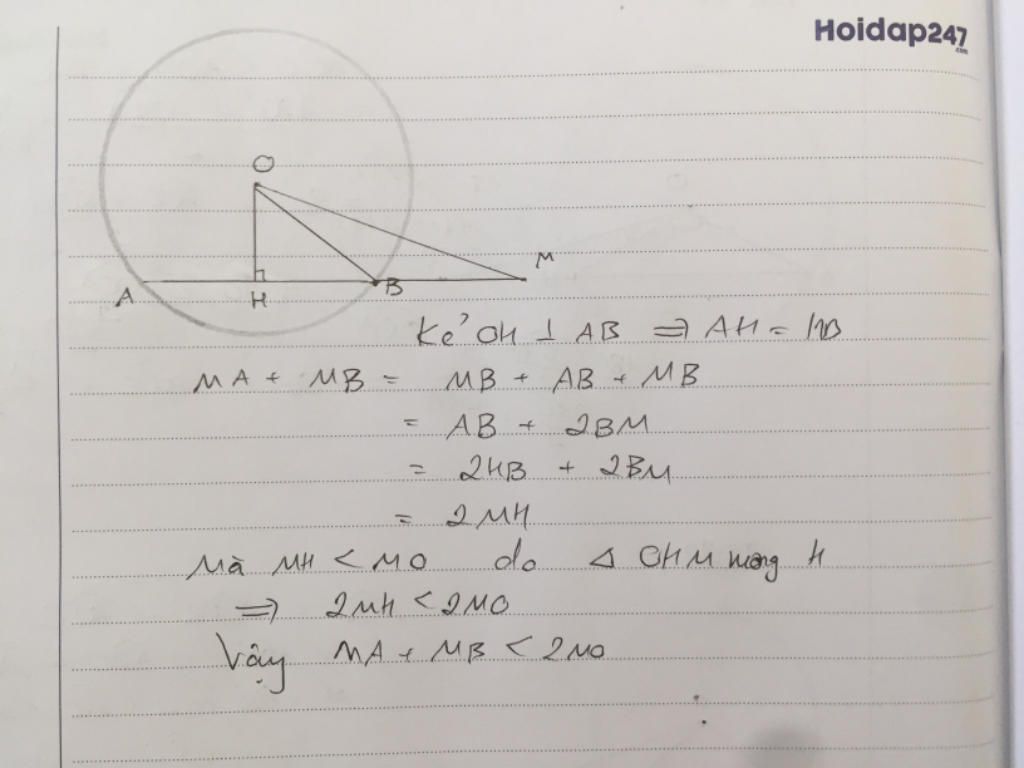 Hoidap247
.com
O
M
A
H
B
Kẻ OH ⊥ AB ⇒ AH = HB
MA + MB = MB + AB + MB
= AB + 2BM
= 2HB + 2BM
= 2MH
Mà MH < MO do Δ OHM vuông H
⇒ 2MH < 2MO
Vậy MA + MB < 2MO